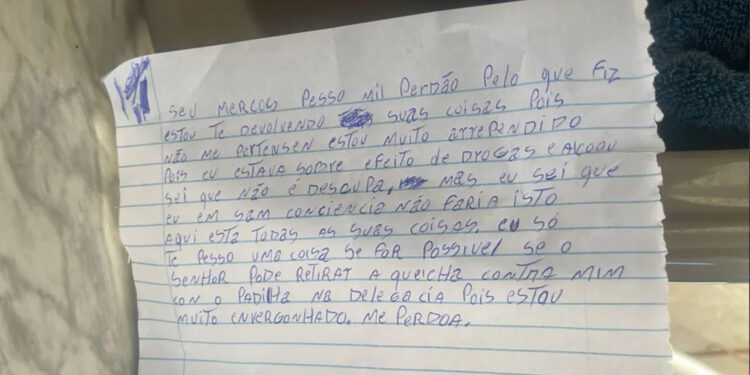 SEU MERCOS PESSO MIL PERDÃO PELO QUE FIZ
ESTOU TE DEVOLVENDO SUAS COISAS POIS
NÃO ME PERTENSEN ESTOU MUITO ARREPENDIDO
POIS EU ESTAVA SOBRE EFEITO DE DROGAS E ALCOOU
SEI QUE NÃO É DESCUPA, MAS EU SEI QUE
EU EM SAM CONCIENCIA NÃO FARIA ISTO
AQUI ESTA TODAS AS SUAS COISAS. EU SÓ
TE PESSO UMA COISA SE FOR POSSIVEL SE O
SENHOR PODE RETIRAT A QUEICHA CONTRA MIM
CON O PADILHA NA DELEGACIA POIS ESTOU
MUITO ENVERGONHADO. ME PERDOA.